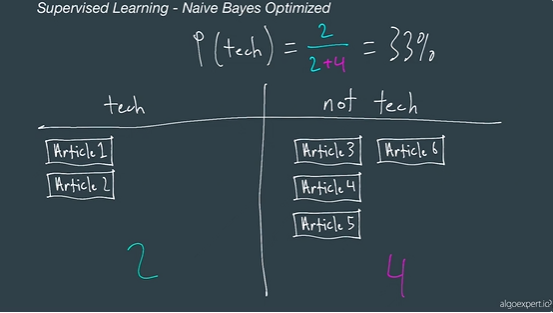 Supervised Learning - Naive Bayes Optimized
P(tech) = 2/(2+4) = 33%
tech not tech
Article 1 Article 3 Article 6
Article 2 Article 4
Article 5
2 4
algoexpert.io